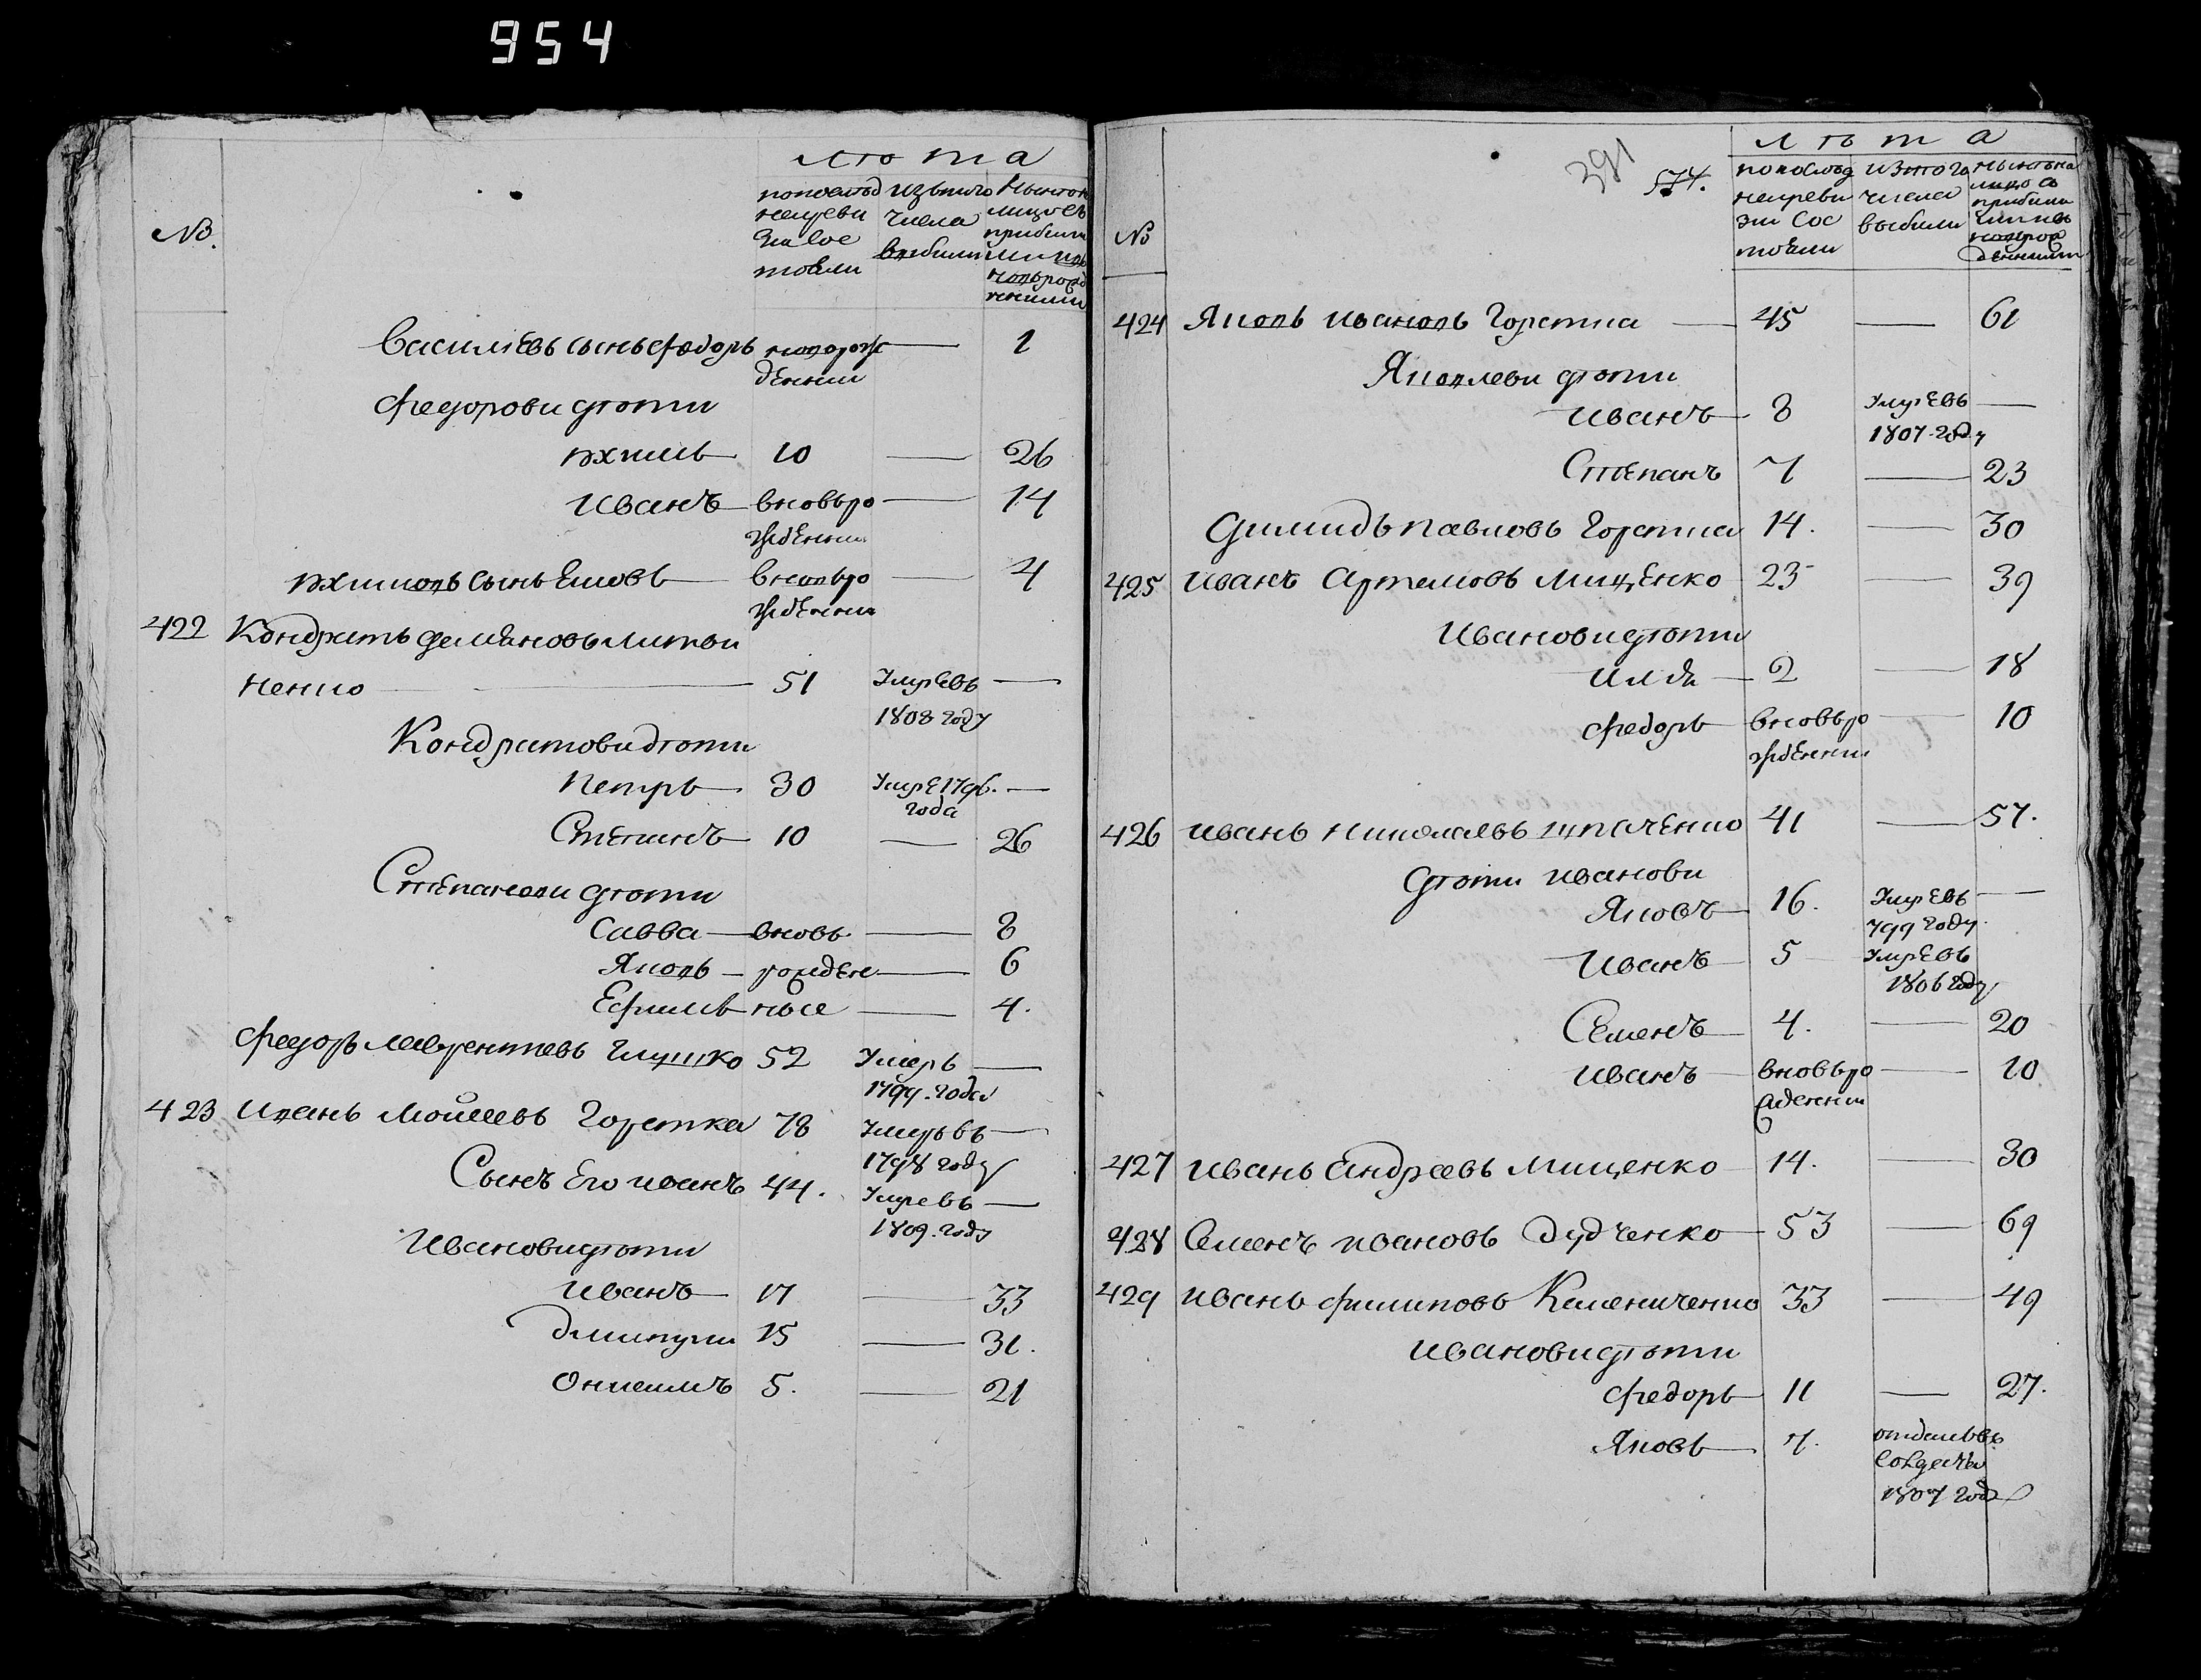 954
лѣта
№
попослѣд нейреви зіи сос тояли
изътаго числа выбыли
Василиевъ сынъ Федоръ новорож денни — 1
Федорови дѣти
Яхимъ 10 — 26
Иванъ вновьро жденни — 14
Яхимовъ сынъ вновьро жденни — 4
422 Кондратъ Демяновъ Литви
ненко — 51 Умре въ 1808 году —
Кондратови дѣти
Петръ 30 Умре 1796. года —
Степанъ 10 — 26
Степанови дѣти
Савва вновь — 8
Яковъ рожден — 6
Ефимъ ные — 4.
Федоръ Лаврентиевъ Глушко 52 Умеръ 1799. года —
423 Иванъ Мойсеевъ Горетка 78 Умеръ въ 1798 году —
Сынъ Его иванъ 44. Умре въ 1809. году —
Иванови дѣти
Иванъ 17 — 33
Дмитри 15 — 31.
Онисимъ 5. — 21
391
574.
лѣта
№
попослѣд нейреви зіи сос тояли
изтого числа выбыли
424 Яковъ Ивановъ Горетка — 45 — 61
Яковлеви дѣти
Иванъ 8 Умре въ 1807. году —
Степанъ 7 — 23
Димидъ Павловъ Горетка 14. — 30
425 Иванъ Артемовъ Мищенко 23 — 39
Иванови дѣти
Илья 2 — 18
Федоръ вновьро жденни — 10
426 Иванъ Николаевъ 41 — 57.
Дѣти Иванови
Яковъ 16. Умре въ 799 году. —
Иванъ 5 Умре въ 1806 году
Семенъ 4. — 20
Иванъ вновьро жденни — 10
427 Иванъ Андреевъ Мищенко 14. — 30
428 Семенъ Ивановъ Дудченко 53 — 69
429 Иванъ Филиповъ Каменченко 33 — 49
Иванови дѣти
Федоръ 11 — 27.
Яковъ 7. отданъ въ солдаты 1807 году